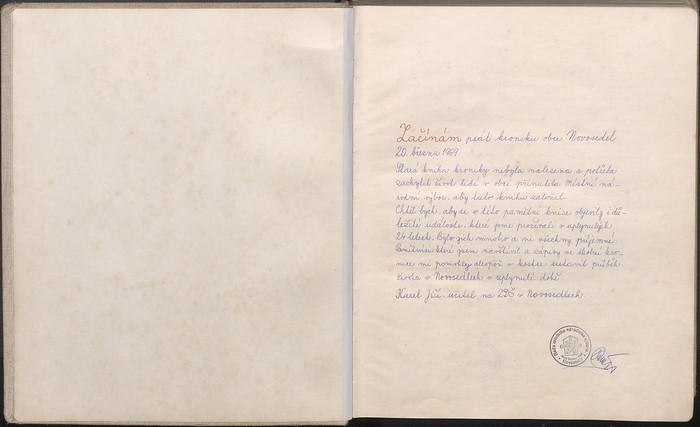 Začínám psát kroniku obce Novosedel
20. března 1969
Stará kniha kroniky nebyla nalezena a potřeba
zachytit život lidí v obci přinutila Místní ná-
rodní výbor, aby tuto knihu založil.
Chtěl bych, aby se v této pamětní knize objevily i dů-
ležité události, které jsme prožívali v uplynulých
24 letech. Bylo jich mnoho a ne všechny příjemné.
které jsem navštívil a zápisy ve školní kro-
nice mi pomohly alespoň v kostce sestavit průběh
života v Novosedlech v uplynulé době.
Karel Jůš, učitel na ZDŠ v Novosedlech.